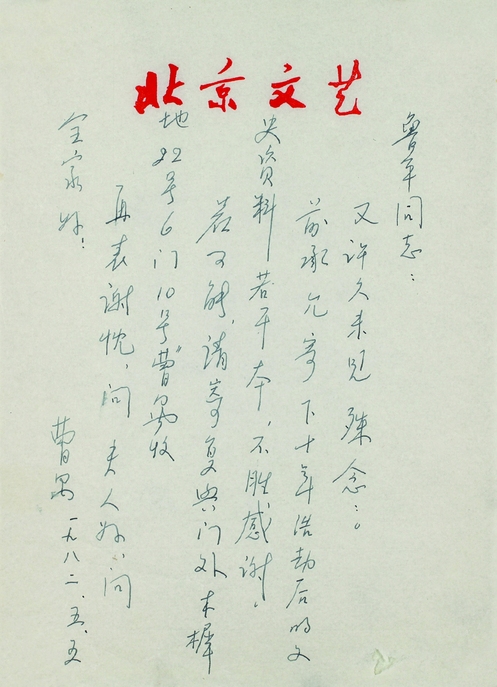 北京文艺
鲁平同志：
又许久未见 殊念。
前承允寄下十年浩劫后的文
史资料若干本，不胜感谢。
若可能，请寄复兴门外木樨
地22号6门10号曹禺收
再表谢忱，问 夫人好，问
全家好！
曹禺 一九八二、五、五